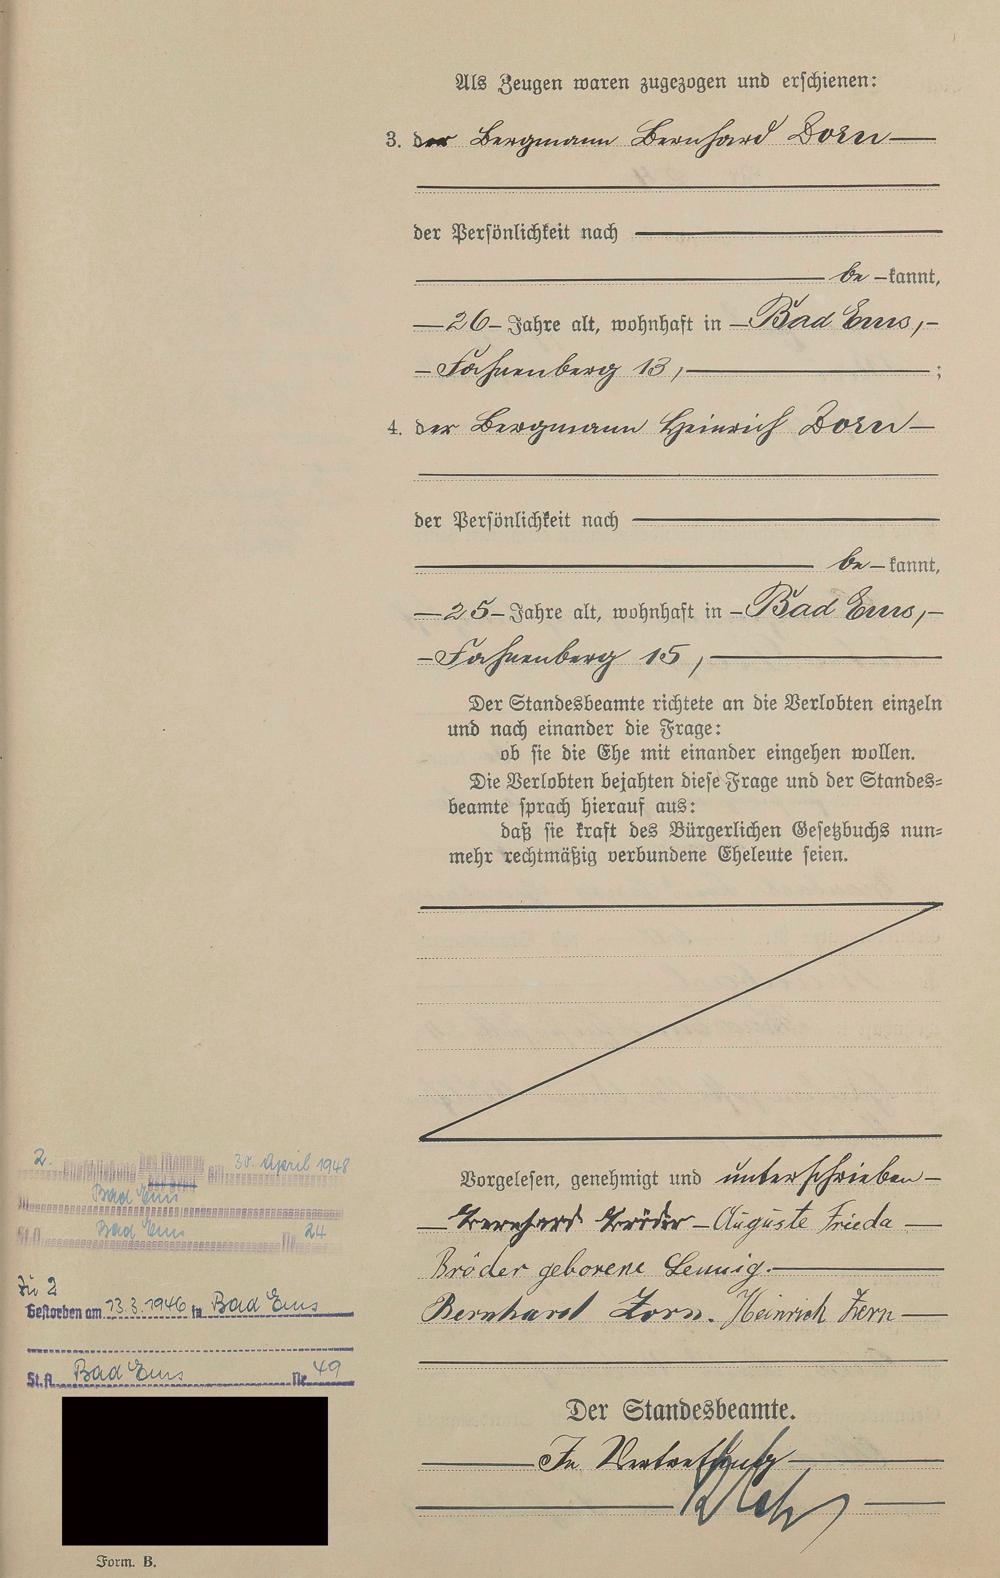 Als Zeugen waren zugezogen und erschienen:
3. der Bergmann Bernhard Zorn
der Persönlichkeit nach
be kannt,
26 Jahre alt, wohnhaft in Bad Ems,
Fahnenberg 13, ;
4. der Bergmann Heinrich Zorn
der Persönlichkeit nach
be kannt,
25 Jahre alt, wohnhaft in Bad Ems,
Fahnenberg 15,
Der Standesbeamte richtete an die Verlobten einzeln
und nach einander die Frage:
ob sie die Ehe mit einander eingehen wollen.
Die Verlobten bejahten diese Frage und der Standes=
beamte sprach hierauf aus:
daß sie kraft des Bürgerlichen Gesetzbuchs nun=
mehr rechtmäßig verbundene Eheleute seien.
Vorgelesen, genehmigt und unterschrieben
Bernhard Bröder Auguste Frieda
Bröder geborene Lennig.
Bernhard Zorn. Heinrich Zorn
Der Standesbeamte.
In Vertretung
2. Eheschließung des Mannes am 30. April 1948
Bad Ems
St.A. Bad Ems Nr. 24
Zu 2
Gestorben am 13.3.1946 in Bad Ems
St.A. Bad Ems Nr. 49
Form. B.